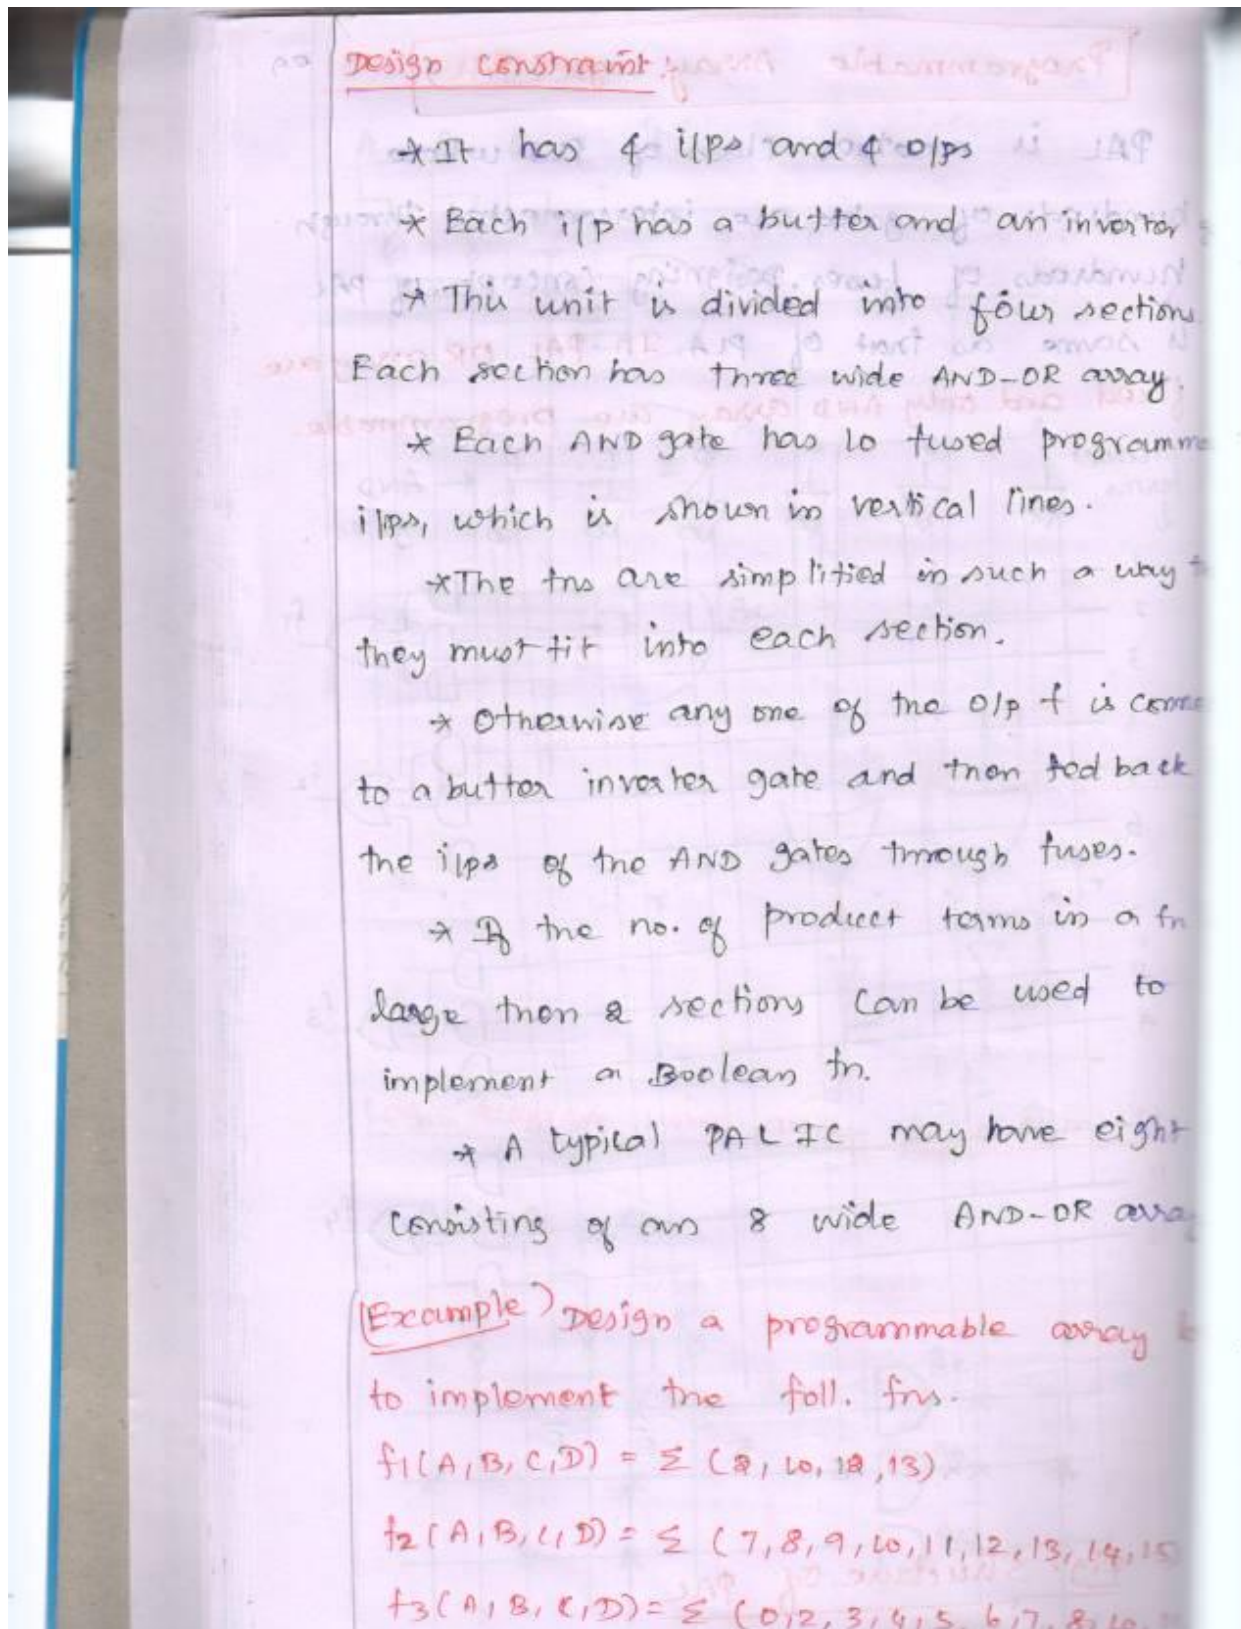 Design Constraint:
* It has 4 i/ps and 4 o/ps
* Each i/p has a buffer and an invertor
* This unit is divided into four sections
Each section has three wide AND-OR array.
* Each AND gate has 10 fused programme
i/ps, which is shown in vertical lines.
* The fns are simplified in such a way
they must fit into each section.
* Otherwise any one of the o/p f is conne
to a buffer inverter gate and then fed back
the i/ps of the AND gates through fuses.
* If the no. of product terms in a fn
large then 2 sections can be used to
implement a Boolean fn.
* A typical PAL IC may have eight
consisting of an 8 wide AND-OR arra
(Example) Design a programmable array
to implement the foll. fns.
f1(A,B,C,D) = Σ (2,10,12,13)
f2(A,B,C,D) = Σ (7,8,9,10,11,12,13,14,15
f3(A,B,C,D) = Σ (0,2,3,4,5,6,7,8,10,